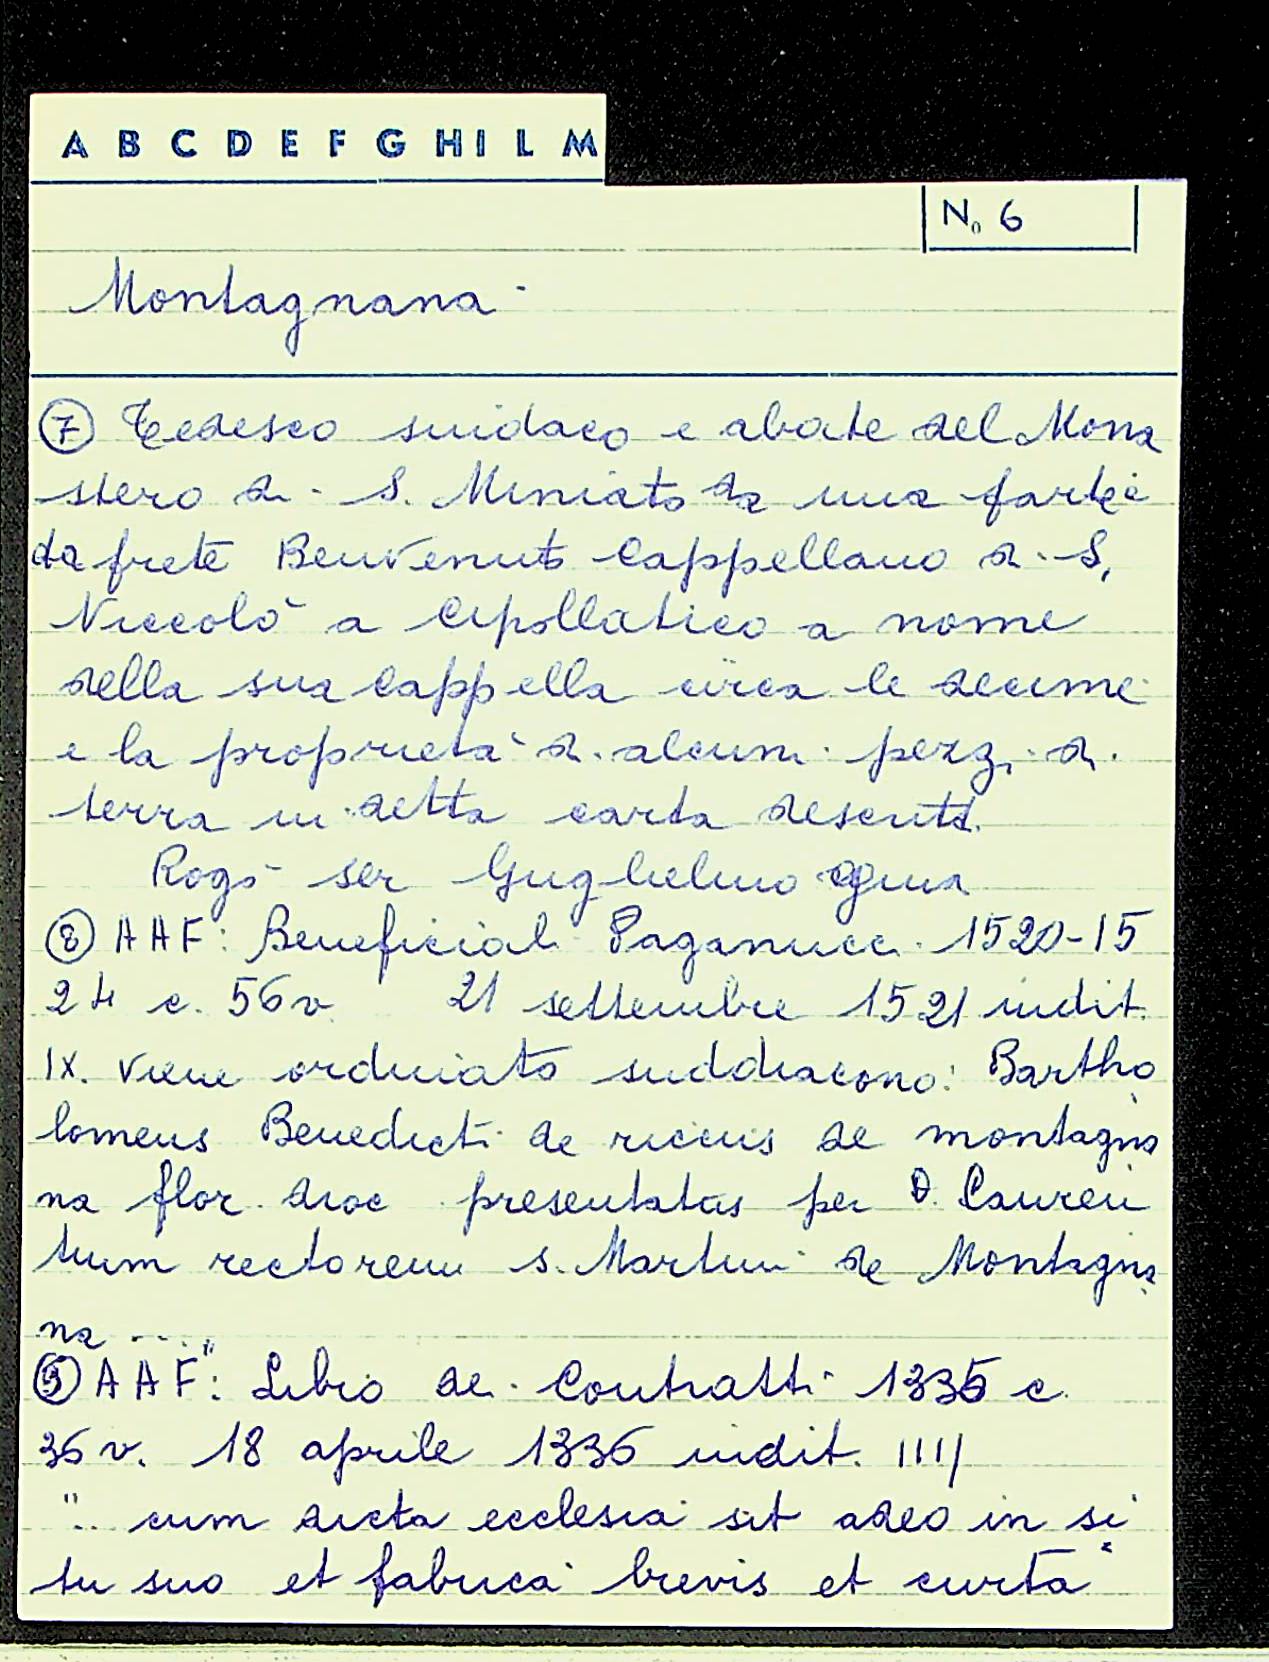 A B C D E F G H I L M
N. 6
Montagnana
⑦ Tedesco sindaco e abate del Mona
stero di S. Miniato da una parte e
da frate Benvenuto Cappellano di S.
Niccolò a Cipollatico a nome
della sua Cappella circa le decime
e la proprietà di alcuni pezzi di
terra in detta carta descritti.
Rogò ser Guglielmo
⑧ AAF: Beneficiali Paganucci 1520-15
24 c. 56v 21 settembre 1521 indit.
IX. viene ordinato suddiacono: Bartho
lomeus Benedicti de ricciis de montagna
na flor. dioc presentatus per D. Lauren
tium rectorem s. Martini de Montagna
na ...."
⑨ AAF: Libro dei Contratti 1335 c.
36 v. 18 aprile 1336 indit. IIII
".. cum dicta ecclesia sit adeo in si
tu suo et fabrica brevis et curta